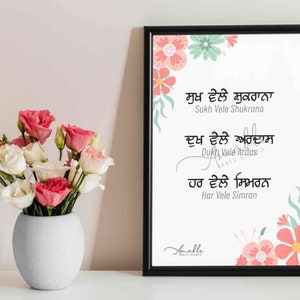 ਸੁਖ ਵੇਲੇ ਸ਼ੁਕਰਾਨਾ
Sukh Vele Shukrana
ਦੁਖ ਵੇਲੇ ਅਰਦਾਸ
Dukh Vele Ardas
ਹਰ ਵੇਲੇ ਸਿਮਰਨ
Har Vele Simran
Amable